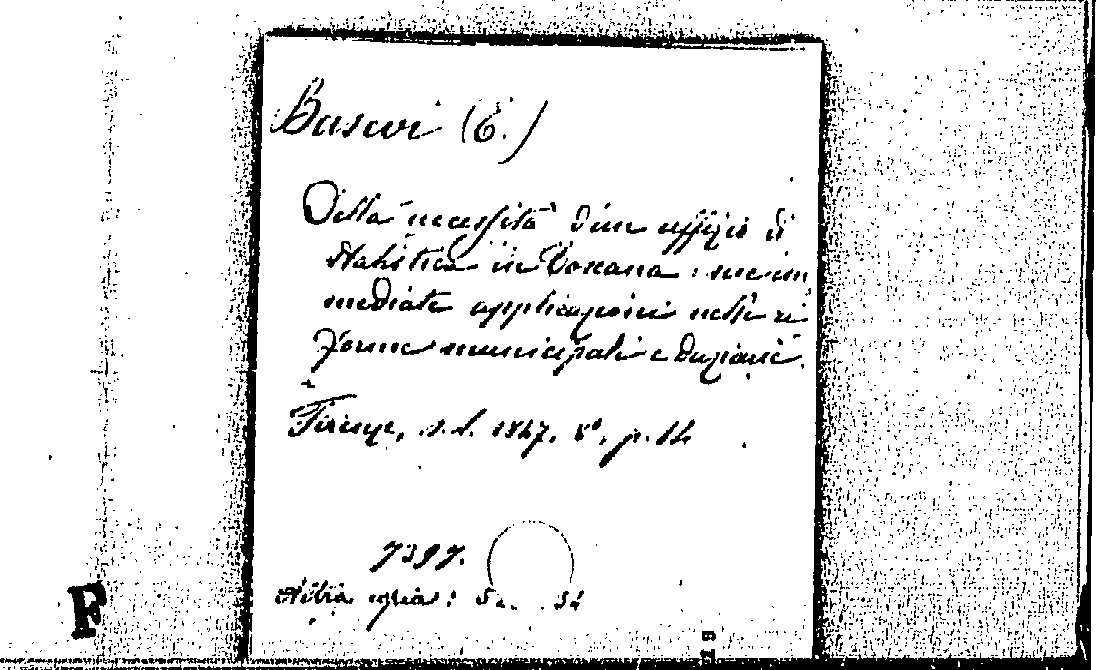 Basevi (E.)
Della necessità d'un uffizio di
statistica in Toscana: sue im
mediate applicazioni nelle ri
forme municipali e daziarie.
Firenze, s.t. 1847, 8°, p. 14
7397.
Altra copia: 5 34
F